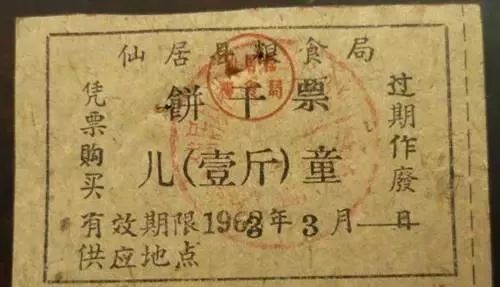 仙居县粮食局
餅干票
儿(壹斤)童
凭票购买
过期作廢
有效期限1963年3月 日
供应地点